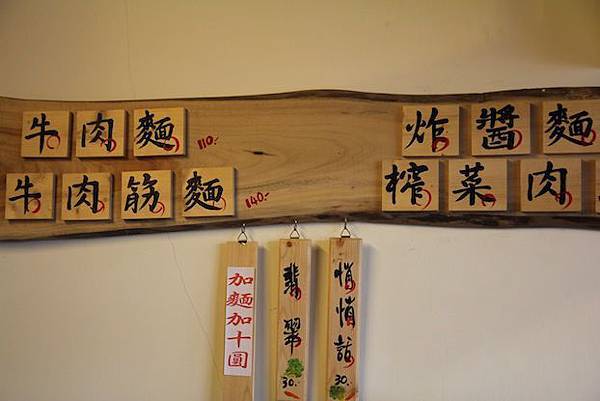 牛肉麵 110.-
牛肉筋麵 140.-
炸醬麵
榨菜肉
加麵加十圓
翡翠 30.-
悄悄話 30.-